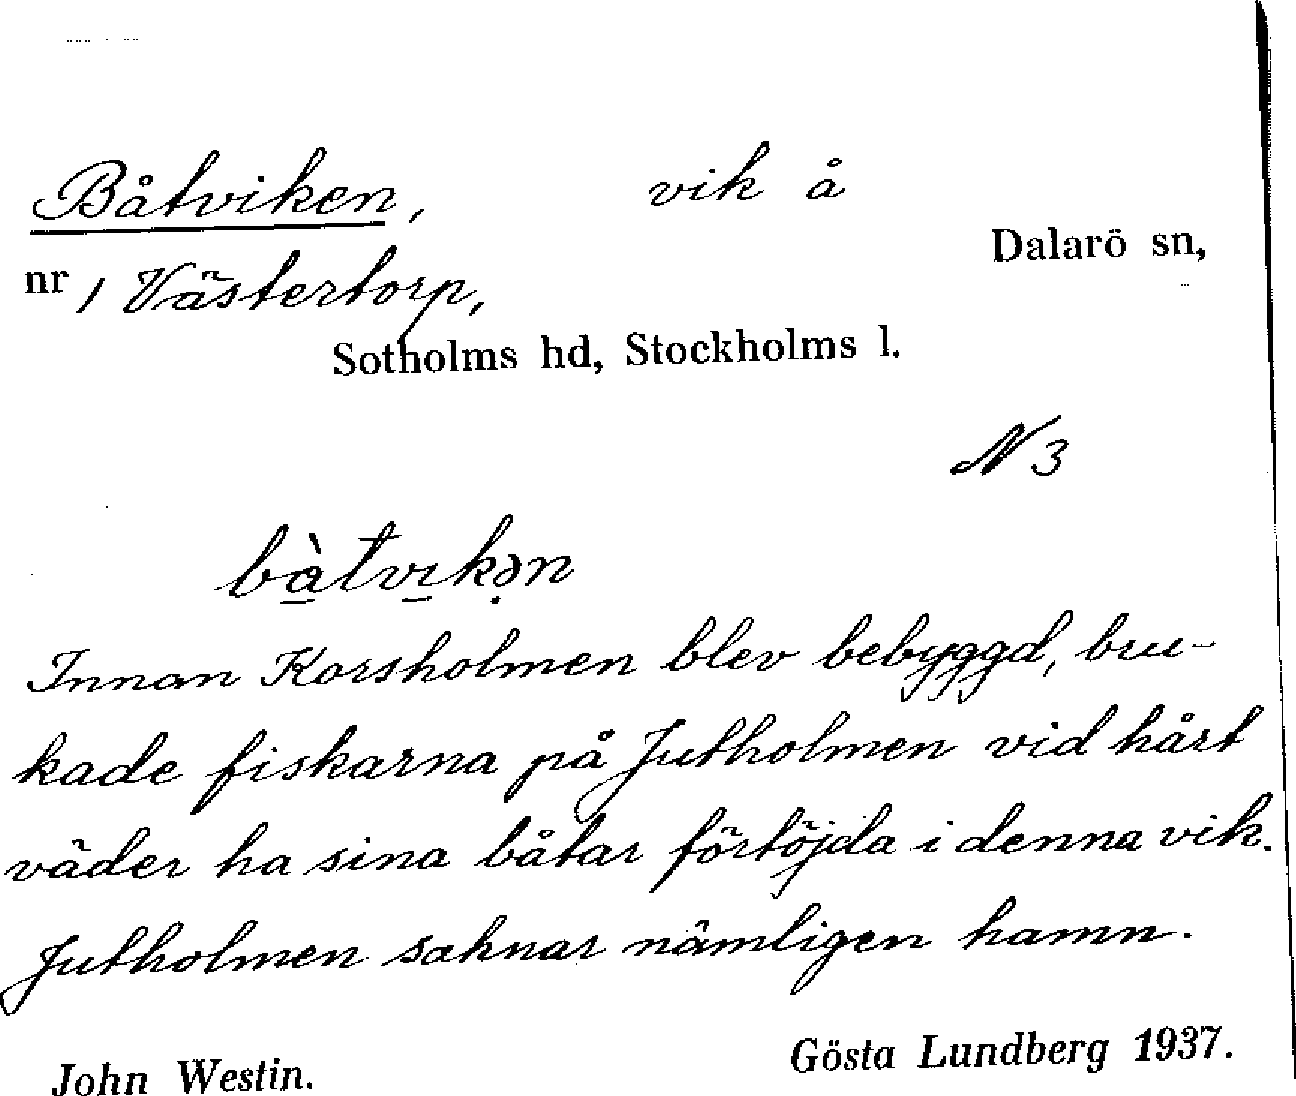 Båtviken, vik å
Dalarö sn,
nr 1 Västertorp,
Sotholms hd, Stockholms l.
N 3
bàtvikən
Innan Korsholmen blev bebyggd, bru-
kade fiskarna på Jutholmen vid hårt
väder ha sina båtar förtöjda i denna vik.
Jutholmen saknar nämligen hamn.
John Westin. Gösta Lundberg 1937.